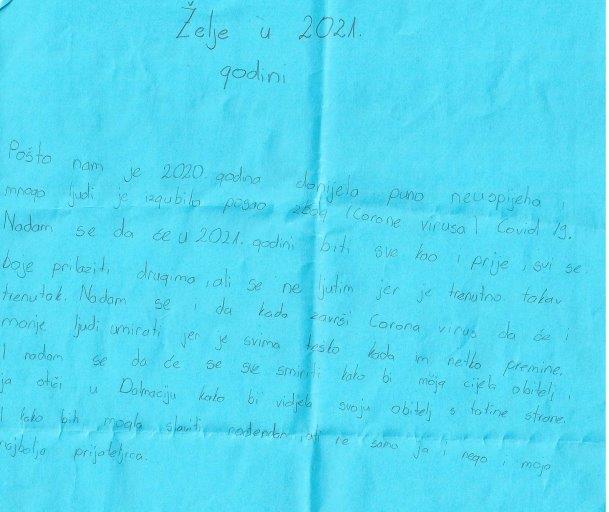 Želje u 2021.
godini
Pošto nam je 2020. godina donijela puno neuspijeha i
mnogo ljudi je izgubilo posao zbog (Corone virusa) Covid 19.
Nadam se da će u 2021. godini biti sve kao i prije, svi se
boje prilaziti drugima, ali se ne ljutim jer je trenutno takav
trenutak. Nadam se i da kada završi Corona virus da će i
manje ljudi umirati jer je svima teško kada im netko premine.
I nadam se da će se sve smiriti kako bi moja cijela obitelj i
ja otići u Dalmaciju kako bi vidjela svoju obitelj s tatine strane.
I kako bih mogla slaviti rođendan, ali ne samo ja i nego i moja
najbolja prijateljica.